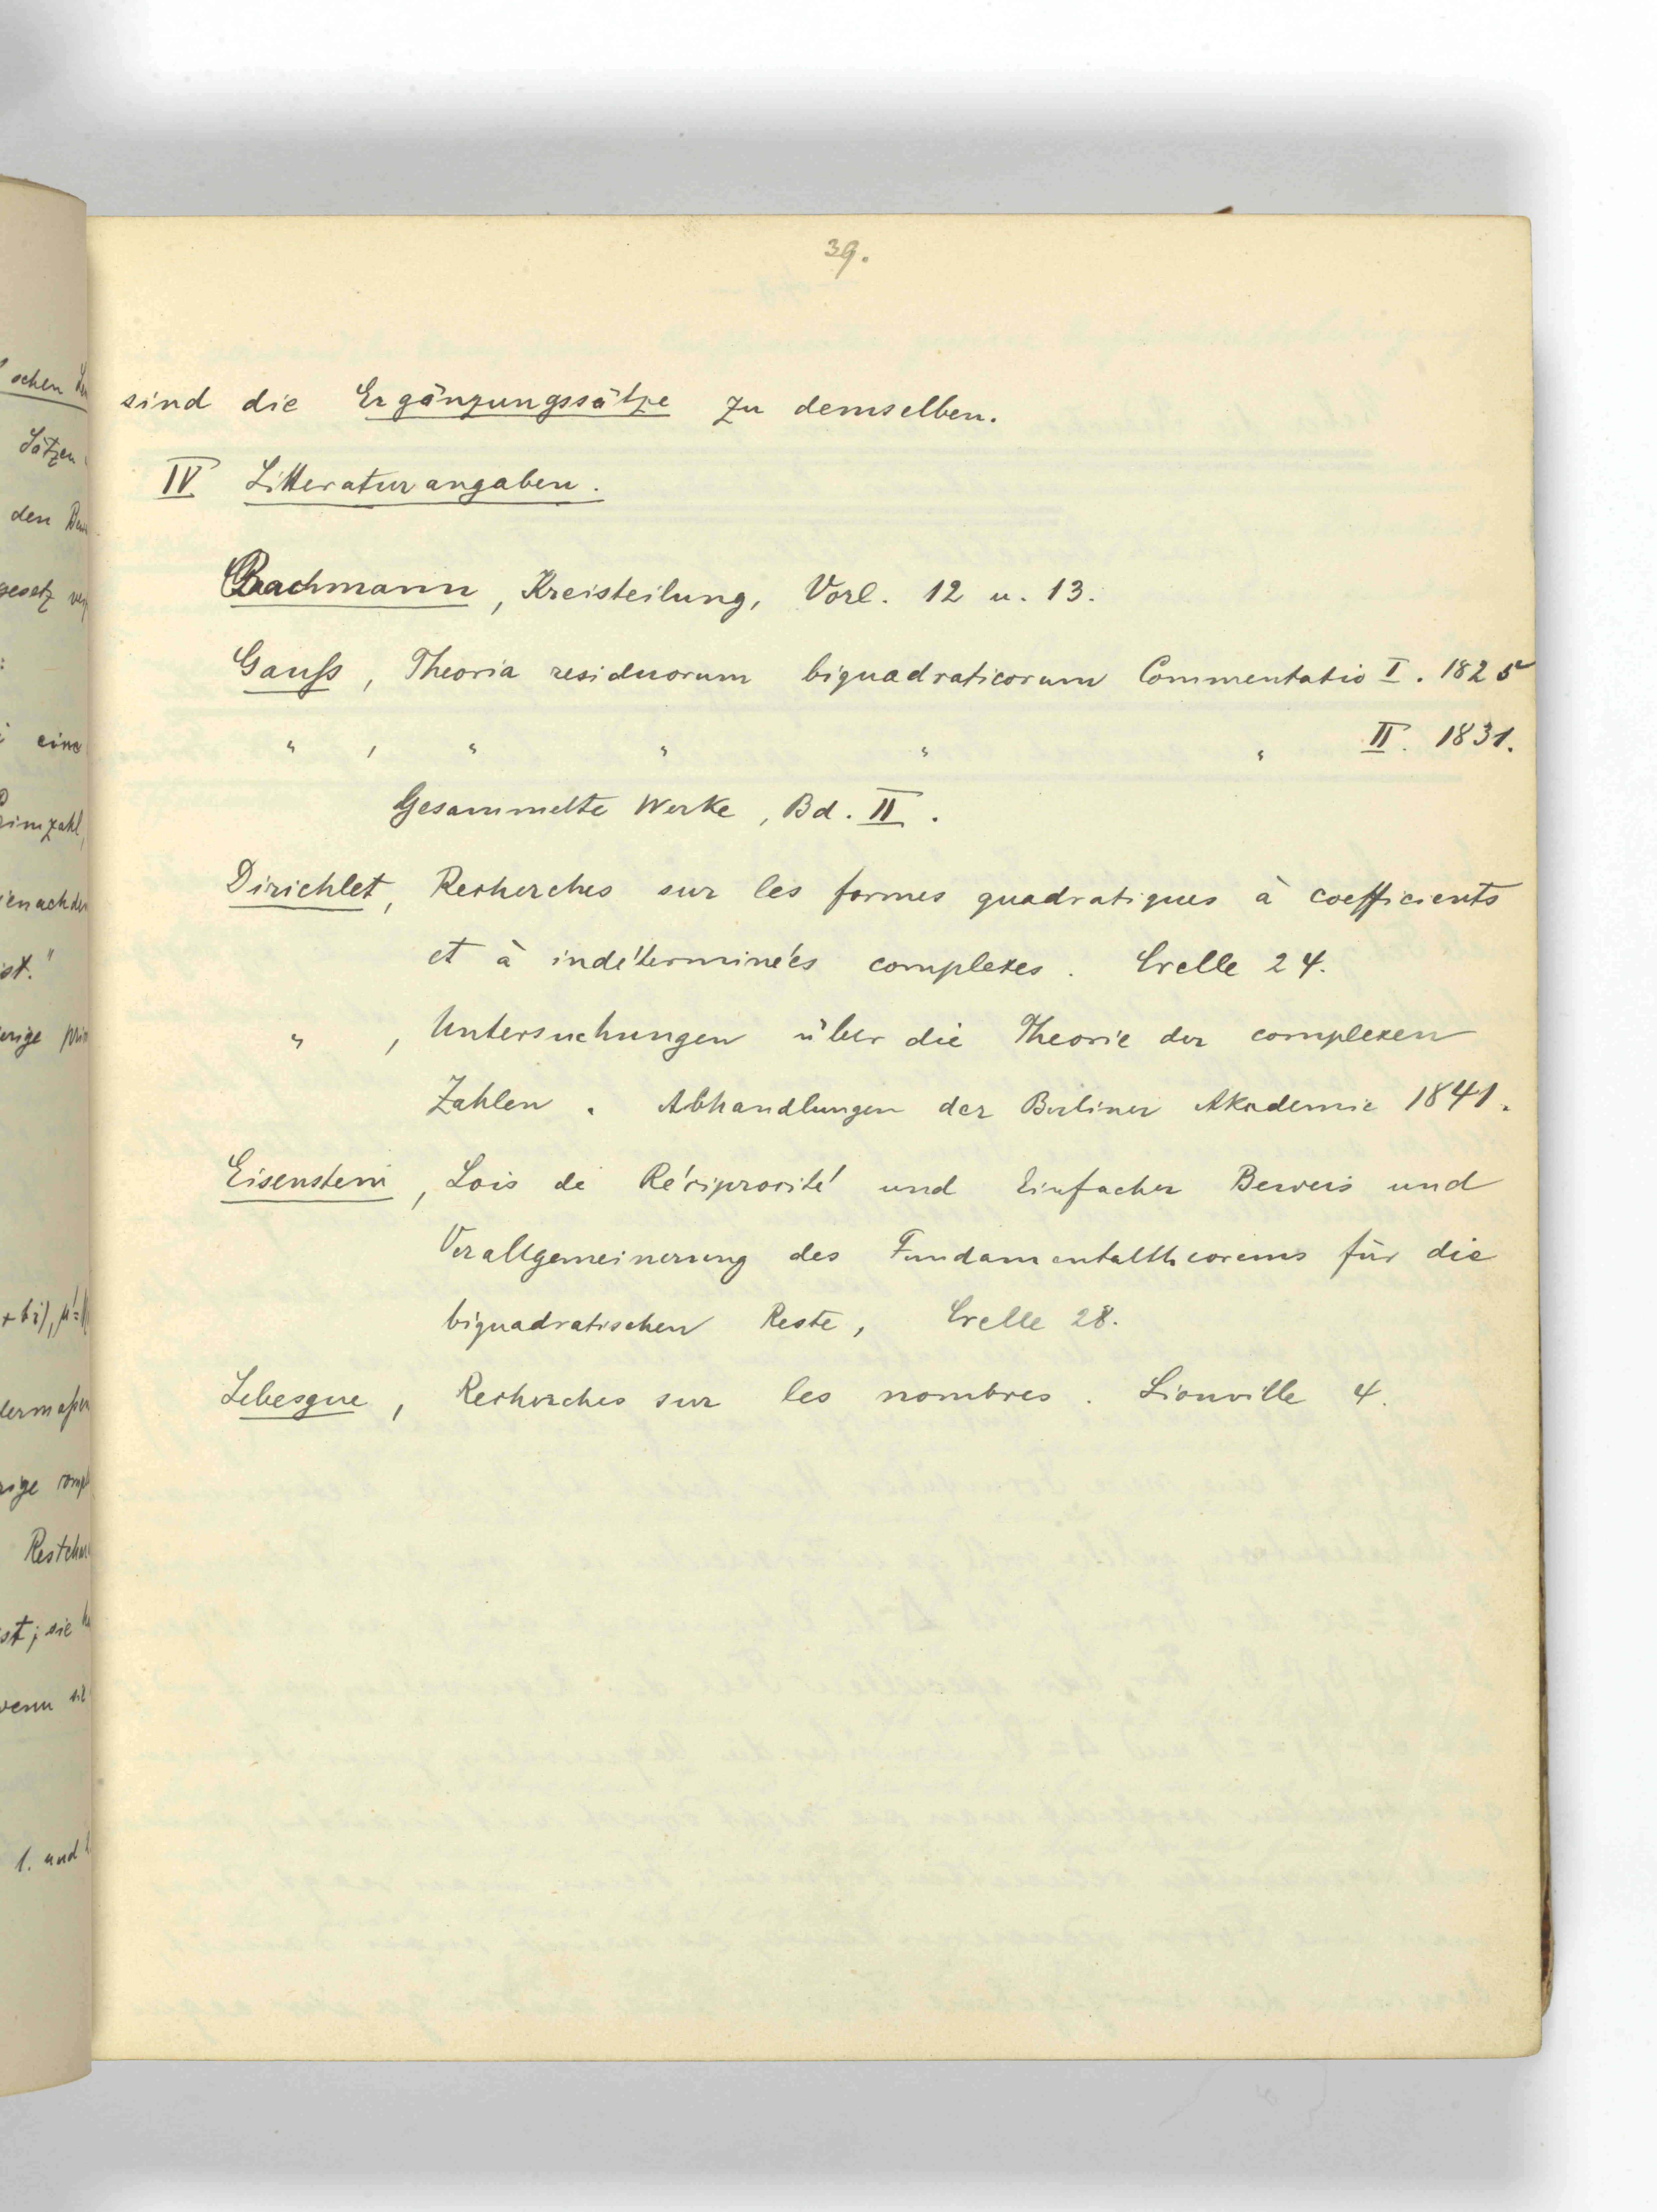 39.
sind die Ergänzungssätze zu demselben.
IV Litteraturangaben.
Bachmann, Kreisteilung, Vorl. 12 u. 13.
Gauß, Theoria residuorum biquadraticorum Commentatio I. 1825
" , " " " " II. 1831.
Gesammelte Werke, Bd. II.
Dirichlet, Recherches sur les formes quadratiques à coefficients
et à indéterminées complexes. Crelle 24.
" , Untersuchungen über die Theorie der complexen
Zahlen. Abhandlungen der Berliner Akademie 1841.
Eisenstein, Lois de Réciprocité und Einfacher Beweis und
Verallgemeinerung des Fundamentaltheorems für die
biquadratischen Reste, Crelle 28.
Lebesgue, Recherches sur les nombres. Liouville 4.
schen
Sätzen
den
gesetz
eine
ist."
Rest
ist; sie
wenn
1. und